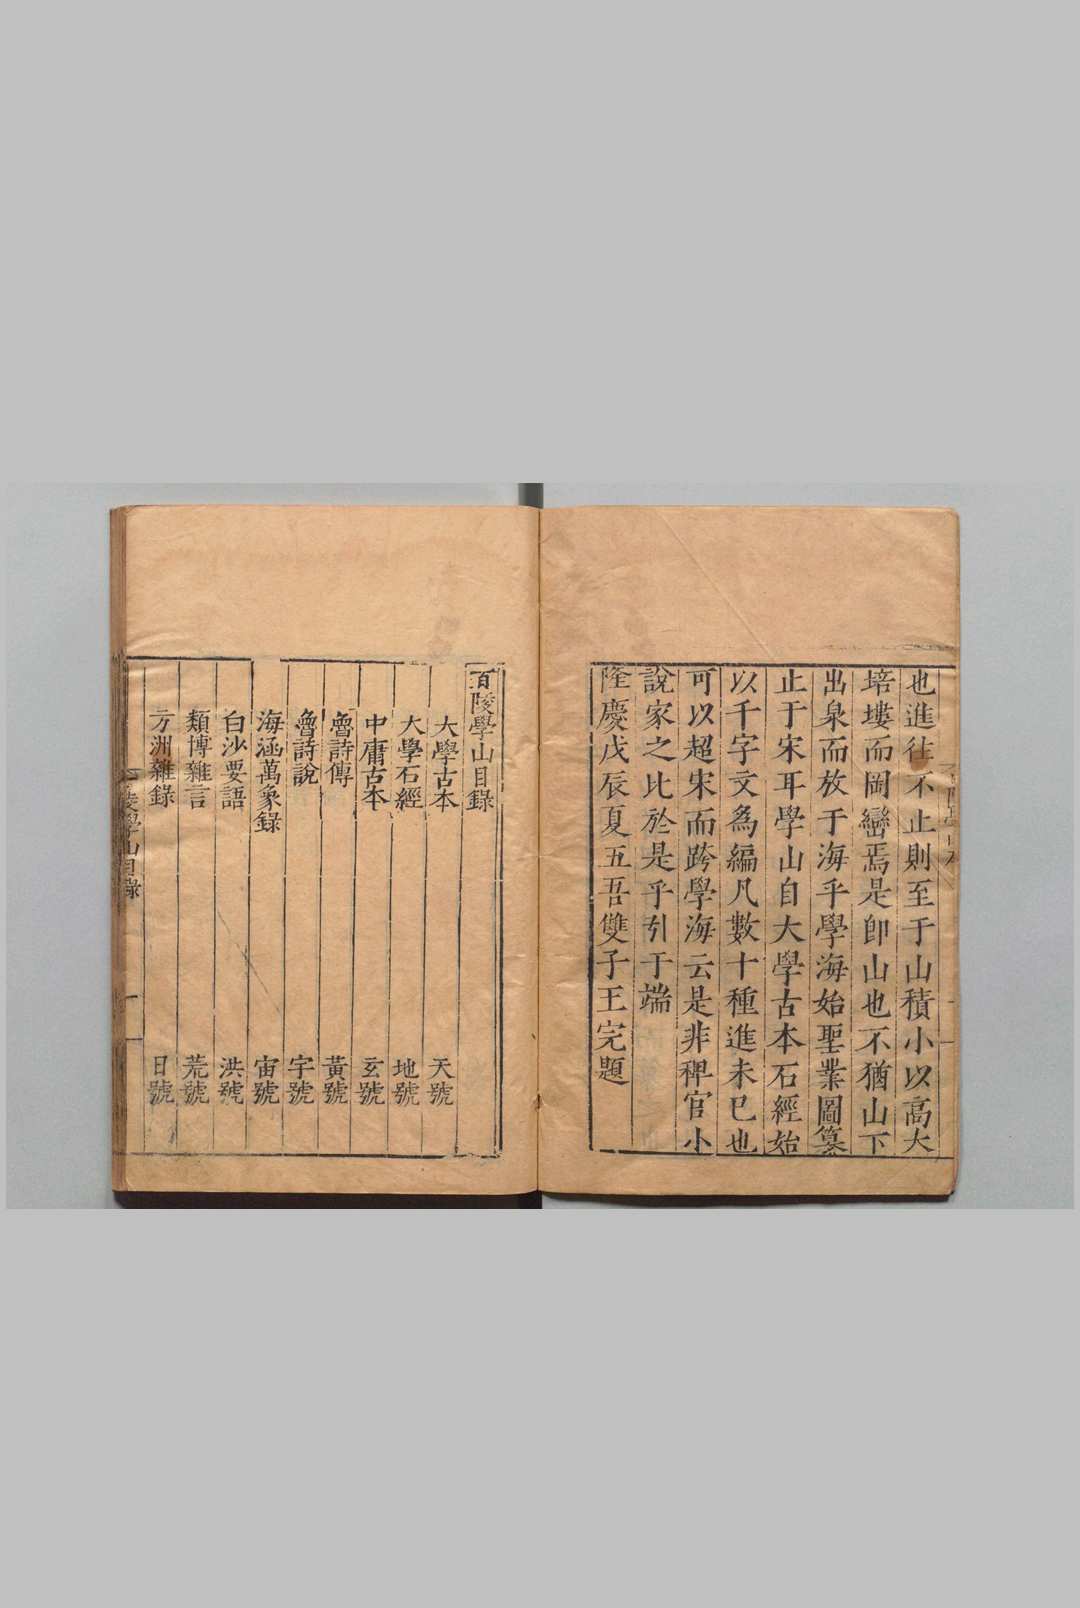 也進往不止則至于山積小以高大
培塿而岡巒焉是卽山也不猶山下
出泉而放于海乎學海始聖業圖纂
止于宋耳學山自大學古本石經始
以千字文為編凡數十種進未已也
可以超宋而跨學海云是非稗官小
說家之比於是乎引于端
隆慶戊辰夏五吾雙子王完題
百陵學山目錄
大學古本 天號
大學石經 地號
中庸古本 玄號
魯詩傳 黃號
魯詩說 宇號
海涵萬象錄 宙號
白沙要語 洪號
類博雜言 荒號
方洲雜錄 日號
陵學山目錄